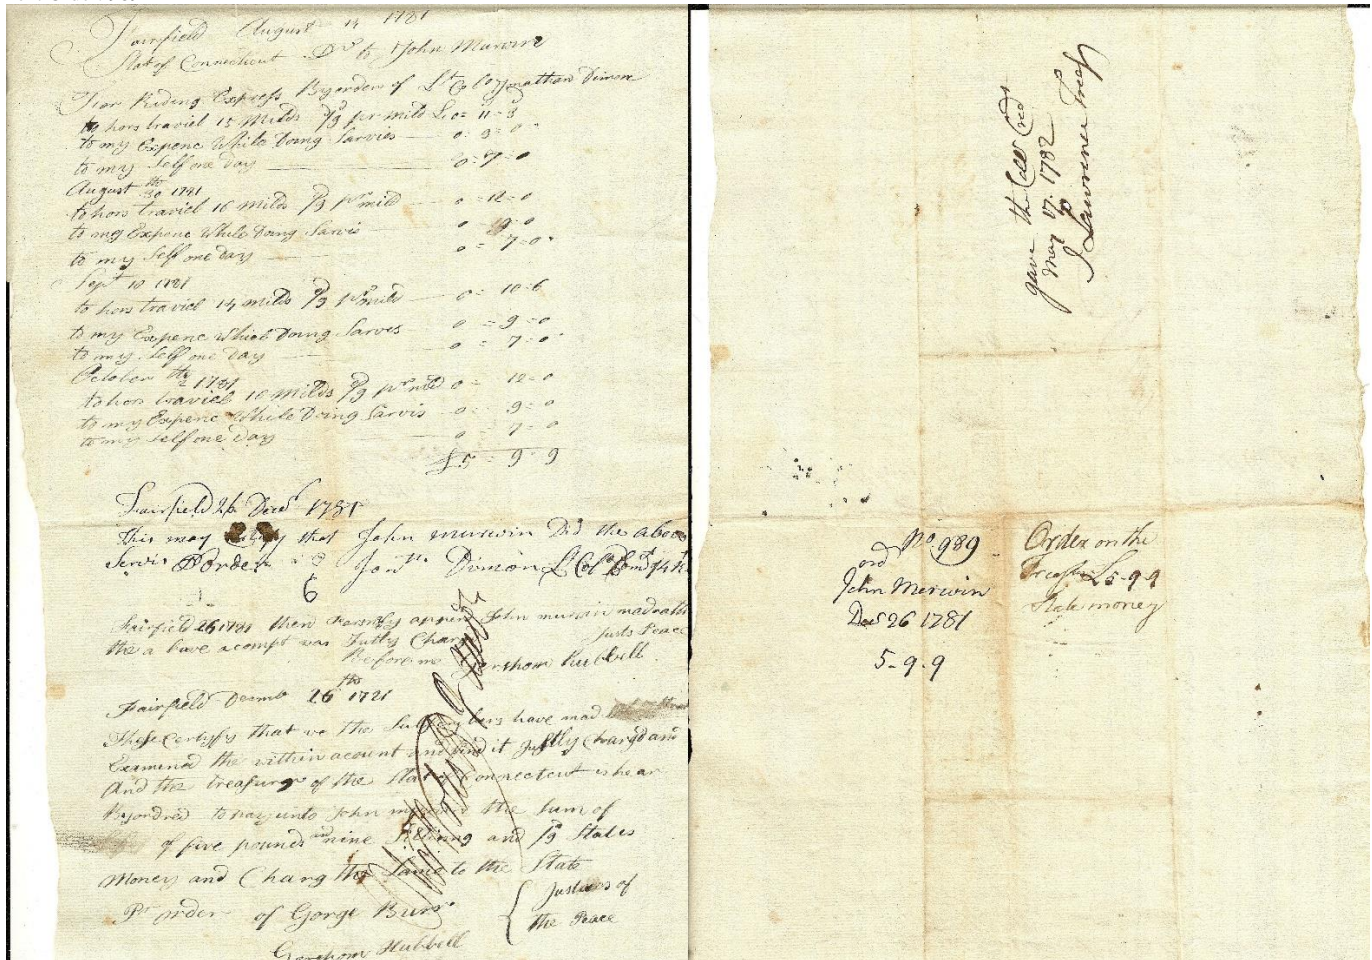 Fairfield August 14 1781
Stat of Connecticut Dr to John Murwin
For Riding Express By order of Lt Colo Jonathan Dimon
to hors traviel 15 Milds /9 per mild £0=11=3
to my Expenc While Doing Sarvies 0=9=0
to my Self one day 0=7=0
August 30th 1781
to hors traviel 16 Milds /9 pr mild 0=12=0
to my Expenc While Doing Sarvis 0=9=0
to my Self one Day 0=7=0
Sept 10 1781
to hors traviel 14 milds /9 pr mild 0=10=6
to my Expenc While Doing Sarves 0=9=0
to my Self one Day 0=7=0
October 1781
to hors traviel 16 Milds /9 pr mild 0=12=0
to my Expenc While Doing Sarvis 0=9=0
to my self one Day 0=7=0
£5=9=9
Fairfield 26 Decr 1781
This may Certify that John murwin Did the above
Servis P order Jonth Dimon Lt Colo Comdt
6
Fairfield 26 1781 then Parsnly appird John murwin mad oath
the a bove acompt was Justly Charg
Justs Peace
Before me Gershom Hubbell
Fairfield Decmb 26th 1781
These Certyfy that we the Subscribers have mad
Examined the within acount and find it Justly Chargd and
And the treasurer of the Stat of Connectecut is hear
By ordred to pay unto John the Sum of
of five pounds and nine Shilling and /9 States
Money and Charg the Same to the State
Pr order of Gorge Burr Justices of
the Peace
Gershom Hubbell
gave the Cer Cred
May 17. 1782
J Lawrence Treasr
No 989
ord
John Merwin
Dec 26 1781
5-9-9
Order on the
Treasr £5-9-9
State money